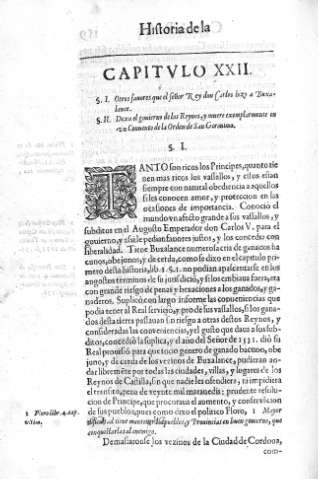 Historia de la
CAPITVLO XXII.
§. I. Otros fauores que el señor Rey don Carlos hizo a Buxa-
lance.
§. II. Dexa el gouierno de los Reynos, y muere exemplarmente en
vn Conuento de la Orden de San Geronimo.
§. I.
TANTO son ricos los Principes, quanto tie
nen mas ricos los vassallos, y estos estan
siempre con natural obediencia a aquellos
si los conocen amor, y proteccion en las
ocasiones de importancia. Conociò el
mundo vn afecto grande a sus vassallos, y
subditos en el Augusto Emperador don Carlos V. para el
gouierno, y assi le pedian fauores justos, y los concedio con
liberalidad. Tiene Buxalance numerosa cria de ganados ba
cunos, obejunos, y de cerda, como se dixo en el capitulo pri
mero desta historia, lib. 1. §. 1. no podian apacentarse en los
angostos terminos de su jurisdicion, y si los embiaua fuera, era
con grande riesgo de penas y bexaciones a los ganados, y ga-
naderos. Suplicò con largo informe las conueniencias que
podia tener al Real seruicio, y pro de sus vassallos, si los gana-
dos desta tierra passauan sin riesgo a otras destos Reynos, y
consideradas las conueniencias, y el gusto que daua a sus sub-
ditos, concedio la suplica, y el año del Señor de 1531. diò su
Real prouision para que todo genero de ganado bacuno, obe
juno, y de carda de los vezinos de Buxalance, pudiessen an-
dar libremente por todas las ciudades, villas, y lugares de los
Reynos de Castilla, sin que nadie les ofendiera, ni impidiera
el transito, pena de veynte mil marauedis; prudente resolu-
cion de Principe, que procuraua el aumento, y conseruacion
de sus pueblos, pues como dixo el politico Floro, 1 Mayor
dificultad tiene mantener Republicas, y Prouincias en buen gouierno, que
conquistarlas al enemigo.
1 Floro libr. 4. cap.
vltim.
Demasiaronse los vezinos de la Ciudad de Cordoua,
com-